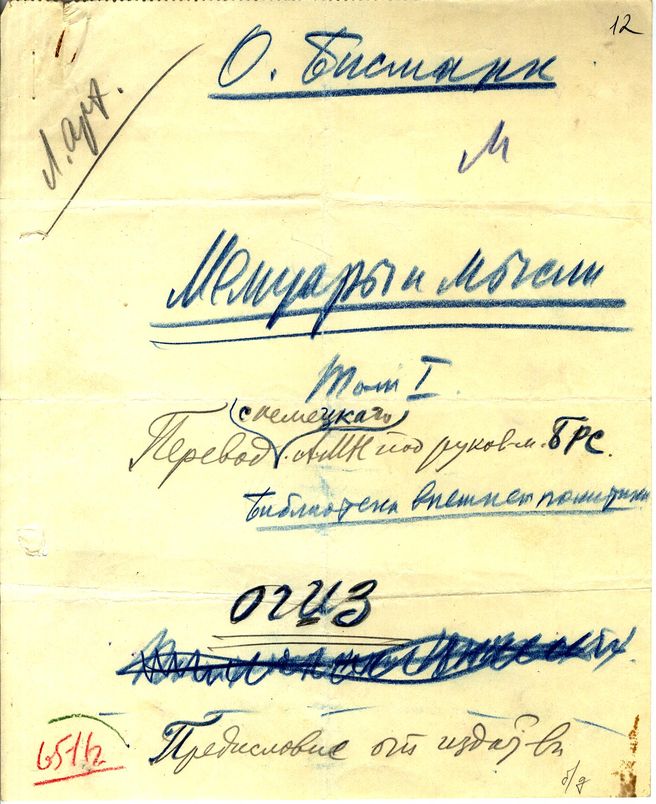 12
О. Бисмарк
М
Мемуары и мысли
Том I.
с немецкого
Перевод АМН под руков-м БРС.
Библиотека внешней политики
ОГИЗ
Предисловие от издат-ва
б/д